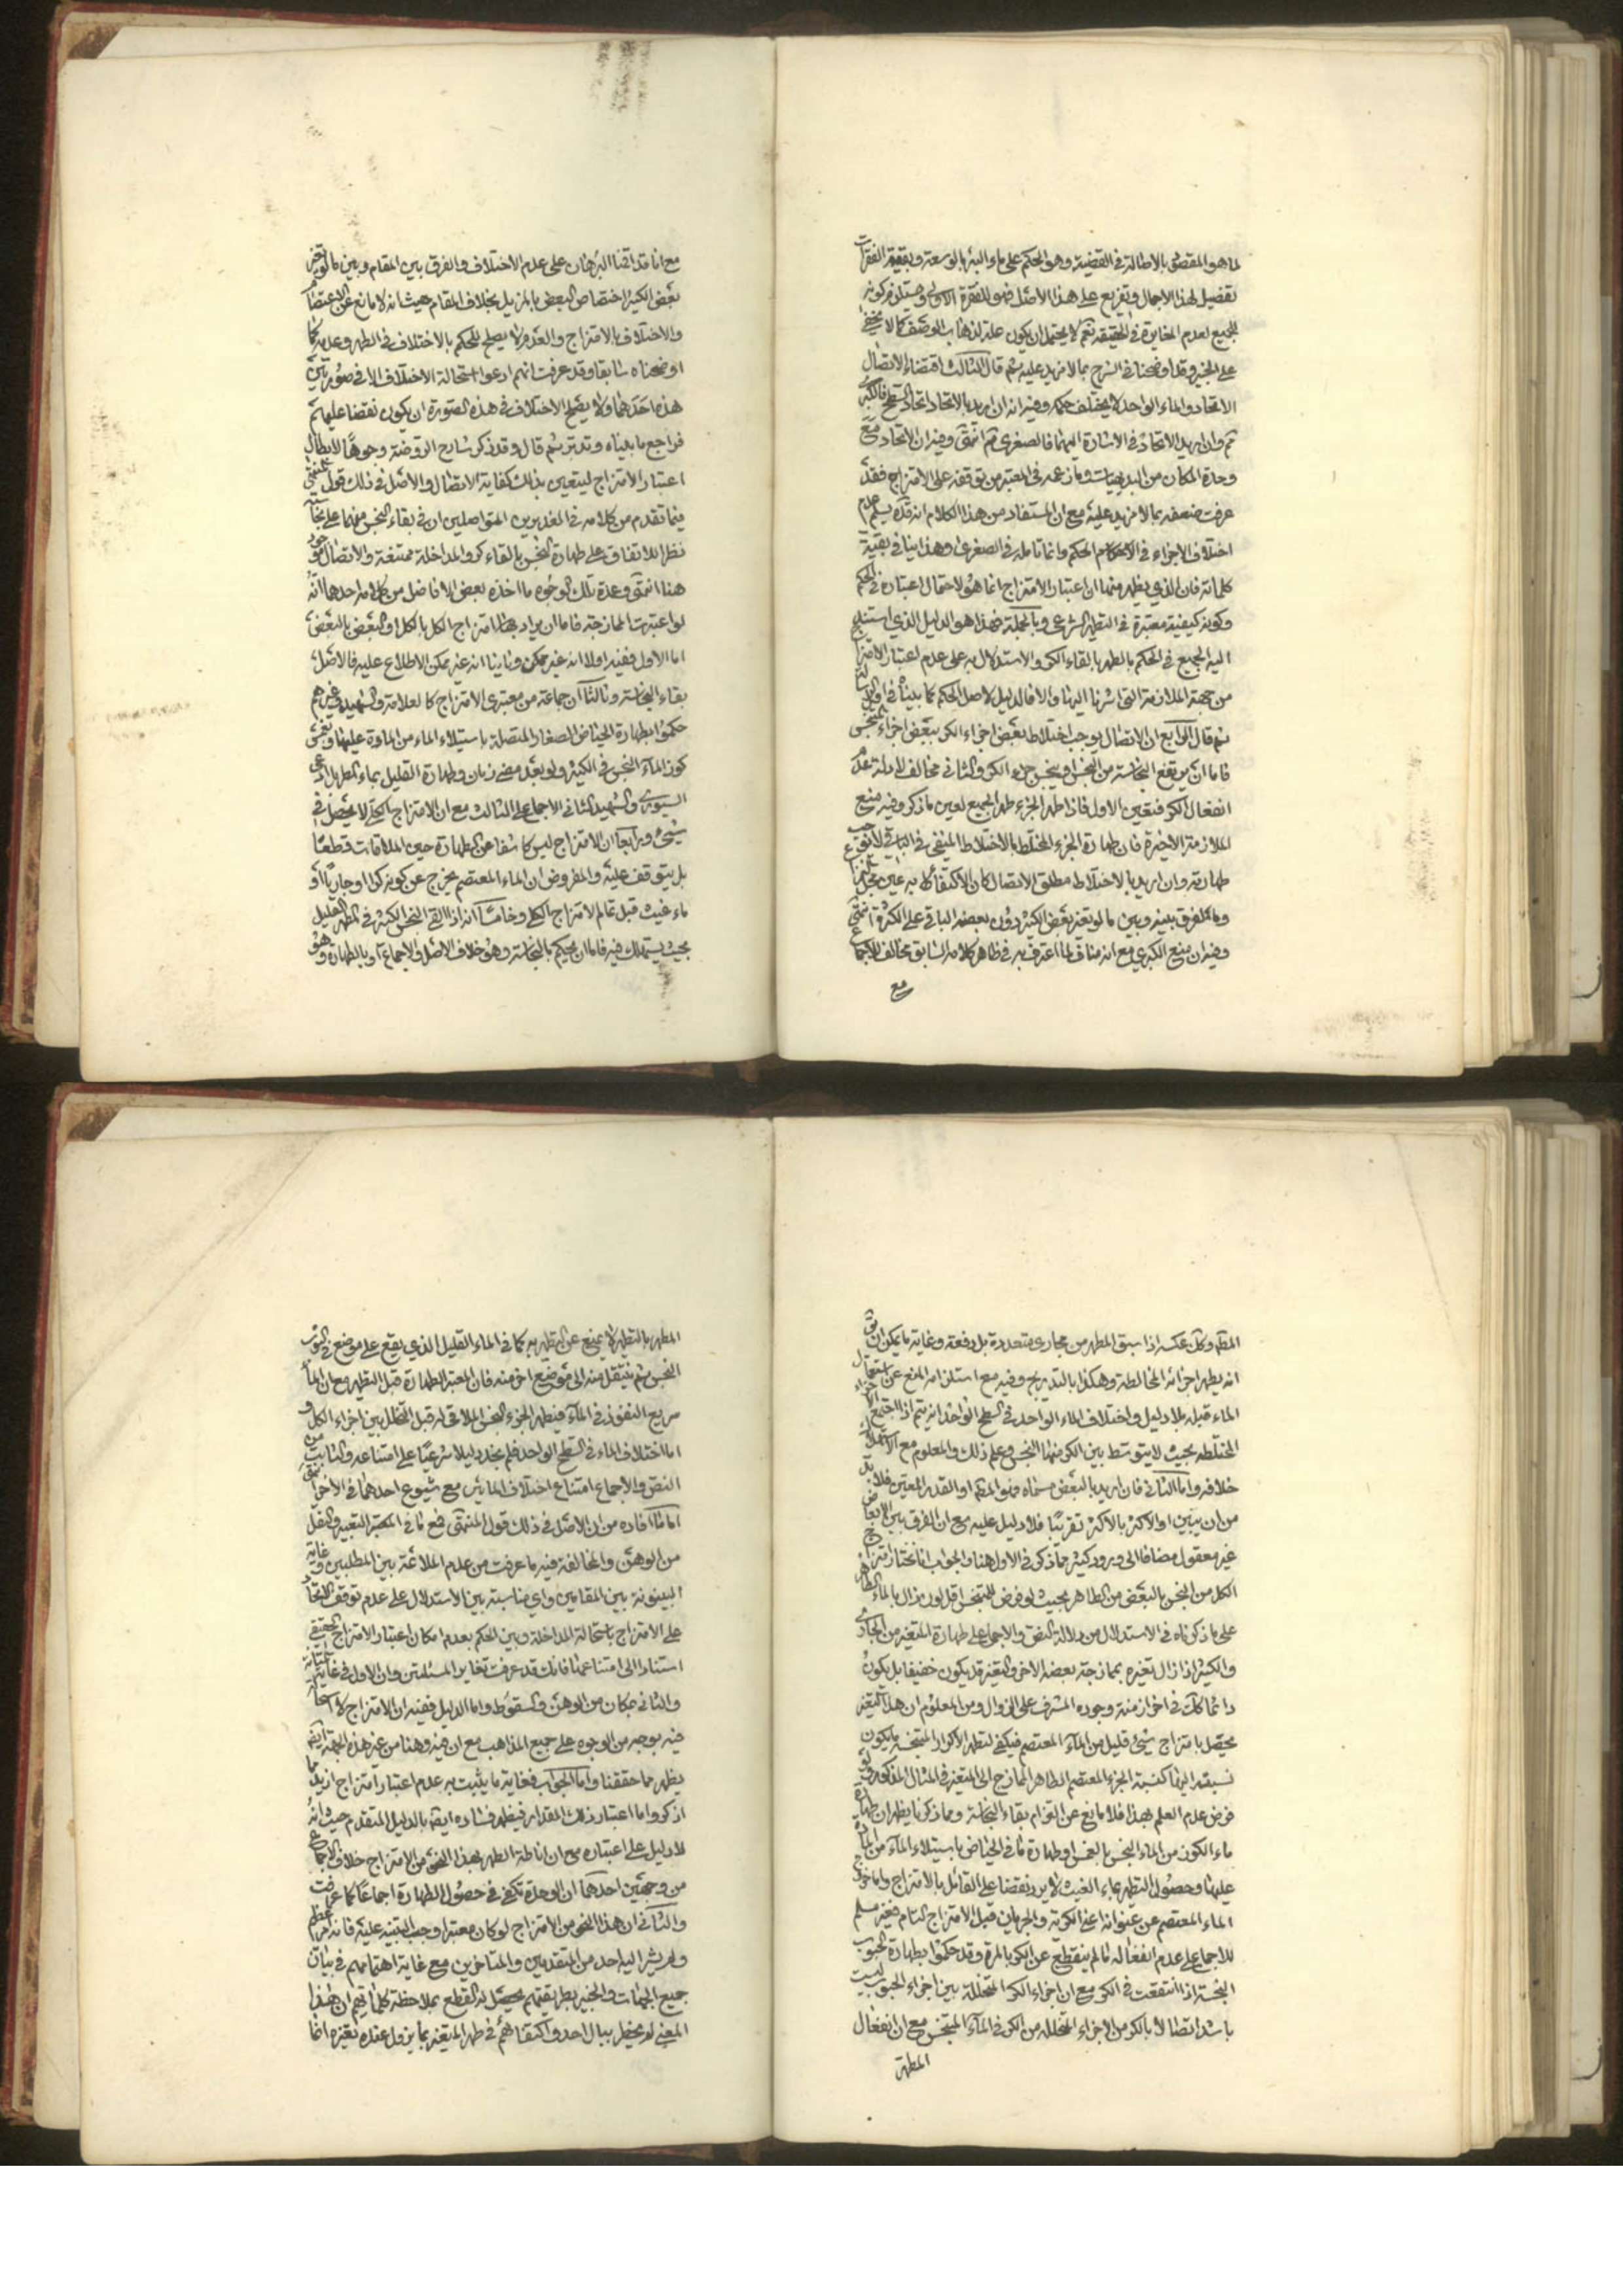 لما هو المقصود بالاطالة في القضية وهو الحكم على ماء البئر بالوسعة وبقية الفقرات
تفصيل لهذا الاجمال وتفريع على هذا الاصل فهو للفقرة الاولى ويستلزم كونه
للجميع لعدم المغايرة في الحقيقة نعم لا يحتمل ان يكون علة لذهاب الوصف كما لا يخفى
على الخبير وقد اوضحنا في الشرح بما لا مزيد عليه ثم قال الثالث اقتضاء الاتصال
الاتحاد والماء الواحد لا يختلف حكمه وفيه انه ان اريد بالاتحاد اتحاد السطح فالكبرى
ثم وان اريد الاتحاد في الاشارة اليهما فالصغرى ثم انتهى وفيه ان الاتحاد مع
وحدة المكان من البديهيات وما زعمه في المعتبر من توقفه على الامتزاج فقد
عرفت ضعفه بما لا مزيد عليه مع ان المستفاد من هذا الكلام انه قده يسلم عدم
اختلاف الاجزاء في الحكم وانما تامله في الصغرى وهذا ينافي بقية
كلماته فان الذي يظهر منها ان اعتبار الامتزاج انما هو لاحتمال اعتباره في الحكم
وكونه كيفية معتبرة في التطهير الشرعي وبالجملة فهذا هو الدليل الذي استند
اليه الجميع في الحكم بالطهر بالقاء الكر والاستدلال به على عدم اعتبار الامتزاج
من جهة الملازمة التي اشرنا اليها والا فالدليل لاصل الحكم كما بيناه في اوائل
ثم قال الرابع ان الاتصال يوجب اختلاط بعض اجزاء الكر ببعض اجزاء المتنجس
فاما ان يرتفع النجاسة من النجس او ينجس جزء الكر والثاني مخالف لادلة عدم
انفعال الكر فتعين الاول فاذا طهر الجزء طهر الجميع لعين ما ذكر وفيه منع
الملازمة الاخيرة فان طهارة الجزء المختلط بالاختلاط المنتفي في الباقي لا توجب
طهارته وان اريد بالاختلاط مطلق الاتصال كان الاكتفاء به عين محل النزاع
وما الفرق بينه وبين ما لو تغير بعض الكثير دون بعضه الباقي على الكثرة انتهى
وفيه ان منع الكبرى مع انه مناف لما اعترف به في ظاهر كلامه السابق مخالف للاجماع
مع
مع انا قد اقمنا البرهان على عدم الاختلاف والفرق بين المقام وبين ما لو تغير
بعض الكثير اختصاص البعض بالمزيل بخلاف المقام حيث انه لا مانع عن الاعتضاد
والاختلاف بالامتزاج والعدم لا يصلح للحكم بالاختلاف في الطهر وعدمه كما
اوضحناه سابقا وقد عرفت انهم ادعوا استحالة الاختلاف الا في صورتين
هذه احدهما ولا يصلح الاختلاف في هذه الصورة ان يكون نقضا عليهم
فراجع ما بيناه وتدبر ثم قال وقد ذكر شارح الروضة وجوها لابطال
اعتبار الامتزاج ليتعين بذلك كفاية الاتصال والاصل في ذلك قول المنتهى
فيما تقدم من كلامه في الغديرين المتواصلين ان في بقاء النجس منهما على نجاسته
نظرا للاتفاق على طهارة النجس بالقاء كر والمداخلة ممتنعة والاتصال موجود
هنا انتهى وعدة تلك الوجوه ما اخذه بعض الافاضل من كلامه احدها انه
لو اعتبرت الممازجة فاما ان يراد بها امتزاج الكل بالكل او البعض بالبعض
اما الاول ففيه اولا انه غير ممكن وثانيا انه غير ممكن الاطلاع عليه فالاصل
بقاء النجاسة وثالثا ان جماعة من معتبري الامتزاج كالعلامة والشهيد وغيرهم
حكموا بطهارة الحياض الصغار المتصلة باستيلاء الماء من المادة عليها وبغمس
كوز الماء النجس في الكثير ولو بعد مضي زمان وطهارة القليل بماء المطر بل ادعى
السيوري والشهيد الثاني الاجماع على الثالث مع ان الامتزاج الكلي لا يحصل في
شيء ورابعا ان الامتزاج ليس كاشفا عن الطهارة حين الملاقات قطعا
بل يتوقف عليه والمفروض ان الماء المعتصم يخرج عن كونه كرا او جاريا او
ماء غيث قبل تمام الامتزاج الكلي وخامسا انه اذا القي النجس الكثير في المطهر القليل
بحيث يستهلك فيه فاما ان يحكم بالنجاسة وهو خلاف الاصل والاجماع او بالطهارة وهو
المطه وكك عكسه اذا سبق المطهر من مجاري متعددة بل دفعة وغاية ما يمكن ان يق
انه يطهر اجزائه المخالطة وهكذا بالتدريج وفيه مع استلزامه المنع عن استعمال
الماء قبله بلا دليل واختلاف الماء الواحد في السطح الواحد انه يتم اذا اجتمع الاجزاء
المختلطة بحيث لا يتوسط بين الكر منها النجس وعلم ذلك والمعلوم مع الاستهلاك
خلافه واما الثاني فان اريد بالبعض مسماه فهو المطه او القدر المعين فلا بد
من ان يبين او الاكثر بالاكثر تقريبا فلا دليل عليه مع ان الفرق بين الابعاض
غير معقول مضافا الى ورود كثير مما ذكر في الاول هنا والجواب انا نختار امتزاج
الكل من النجس بالبعض من الطاهر بحيث لو فرض للمتنجس اقل لون زال بالماء الطاهر
على ما ذكرناه في الاستدلال من دلالة النص والاجماع على طهارة المتغير من الجاري
والكثير اذا زال تغيره بممازجة بعضه الاخر والتغير قد يكون خفيفا بل يكون
دائما كك في اخر ازمنة وجوده المشرف على الزوال ومن المعلوم ان هذا التغير
يحصل بامتزاج شيء قليل من الماء المعتصم فيكفي لتطهير الاكرار المتنجسة ما يكون
نسبته اليها كنسبة الجزء المعتصم الطاهر المازج الى المتغير في المثال المذكور ولو
فرض عدم العلم بهذا فلا مانع عن التزام بقاء النجاسة ومما ذكرنا يظهر ان طهارة
ماء الكوز من الماء النجس بالغمس وطهارة ما في الحياض باستيلاء الماء من المادة
عليها وحصول التطهر بماء الغيث لا يرد نقضا على القائل بالامتزاج واما خروج
الماء المعتصم عن عنوانه اعني الكرية والجريان قبل الامتزاج التام فغير مسلم
للاجماع على عدم انفعاله ما لم ينقطع عن الكر بالمرة وقد حكموا بطهارة الحبوب
النجسة اذا انتقعت في الكر مع ان اجزاء الكر المتخللة بين اجزاء الحبوب ليست
باشد اتصالا بالكر من الاجزاء المتخللة من الكر في الماء المتنجس مع ان انفعال
المطهر
المطهر بالتطهير لا يمنع عن التطهير به كما في الماء القليل الذي يقع على موضع من الثوب
النجس ثم ينتقل منه الى موضع اخر منه فان المعتبر الطهارة قبل التطهير مع ان الماء
سريع النفوذ في الماء فيطهر الجزء النجس الملاقي له قبل التخلل بين اجزاء الكل و
اما اختلاف الماء في السطح الواحد فلم نجد دليلا شرعيا على امتناعه والثابت من
النص والاجماع امتناع اختلاف المائين مع شيوع احدهما في الاخر انتهى
اما ما افاده من ان الاصل في ذلك قول المنتهى فمع ما في التعبير والنقل
من الوهن والمخالفة فيه ما عرفت من عدم الملائمة بين المطلبين وغاية
البينونة بين المقامين واي مناسبة بين الاستدلال على عدم توقف الاتحاد
على الامتزاج باستحالة المداخلة وبين الحكم بعدم امكان اعتبار الامتزاج الحقيقي
استنادا الى امتناعها فانك قد عرفت تغاير المسئلتين وان الاول في غاية المتانة
والثاني بمكان من الوهن والسقوط واما الدليل ففيه ان الامتزاج لا استحالة
فيه بوجه من الوجوه على جميع المذاهب مع ان فيه وهنا من غير هذه الجهة ايضا
يظهر مما حققنا واما الجواب فغاية ما يثبت به عدم اعتبار امتزاج ازيد مما
اذكروا ما اعتبار ذلك المقدار فيظهر فساده ايضا بالدليل المتقدم حيث انه
لا دليل على اعتباره مع ان اناطة الطهر بهذا النحو من الامتزاج خلاف الاجماع
من وجهين احدهما ان الوحدة تكفي في حصول الطهارة اجماعا كما عرفت
والثاني ان هذا النحو من الامتزاج لو كان معتبرا وجب التنبيه عليه فانه امر عظيم
ولم يشر اليه احد من المتقدمين والمتاخرين مع غاية اهتمامهم في بيان
جميع الجهات والخبير بطريقتهم يحصل له القطع بملاحظة كلماتهم ان هذا
المعنى لم يخطر ببال احد واكتفائهم في طهر المتغير بما يزول عنده تغيره انما